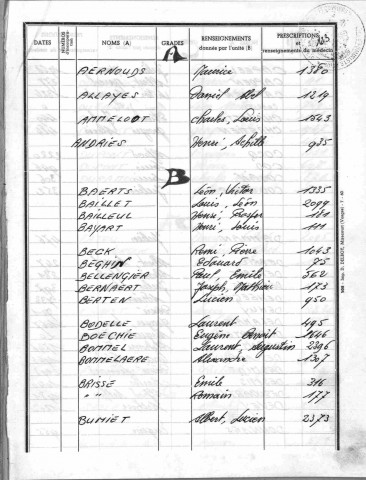 DATES NOMS (A) GRADES RENSEIGNEMENTS donnés par l'unité (B) PRESCRIPTIONS et renseignements du médecin
A
AERNOUDS Maurice 1380
ALLAYES Daniel, Abel 1219
AMMELOOT Charles, Louis 1543
ANDRIES Henri, Achille 935
B
BAERTS Léon, Victor 1335
BAILLET Louis, Léon 2099
BAILLEUL Henri, 181
BAYART Henri, Louis 111
BECK Remi, Pierre 1043
BEGHIN Edouard 75
BELLENGIER Paul, Emile 562
BERNAERT Joseph, Matthieu 173
BERTEN Lucien 950
BODELLE Laurent 495
BOËCHIE Eugène, Benoit 1646
BOMMEL Laurent, Augustin 2396
BOMMELAERE Alexandre 1307
BRISSE Emile 316
" " Romain 177
BUMIET Albert, Lucien 2373